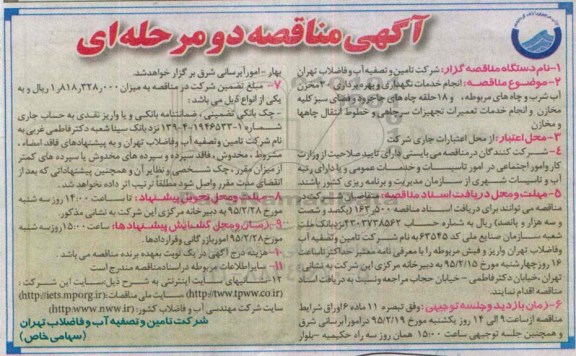 آگهی مناقصه دو مرحله ای
۱-نام دستگاه مناقصه گزار: شرکت تامین و تصفیه آب و فاضلاب تهران
۲-موضوع مناقصه: انجام خدمات نگهداری و بهره برداری ۲۰ مخزن
آب شرب و چاه های مربوطه، و ۱۸ حلقه چاه های جاجرود و فضای سبز کلیه
مخازن و انجام خدمات تعمیرات تجهیزات سرچاهی و خطوط انتقال چاهها
و مخازن
۳-محل اعتبار: از محل اعتبارات جاری شرکت
۴-شرکت کنندگان در مناقصه می بایستی دارای تایید صلاحیت از وزارت
کار و امور اجتماعی در امور تاسیسات و خدمات عمومی و یا دارای رتبه
آب و تاسیسات شهری از سازمان مدیریت و برنامه ریزی کشور باشند
۵-مهلت و محل دریافت اسناد مناقصه: متقاضیان شرکت در
مناقصه می توانند برای دریافت اسناد مناقصه ۱۶۳,۵۰۰ (یکصد و شصت
و سه هزار و پانصد) ریال به شماره حساب ۲۳۰۲۷۳۸۵۶۲ نزد بانک ملت
شعبه سازمان صنایع ملی کد ۶۳۵۴۵ به نام شرکت تامین و تصفیه آب
وفاضلاب تهران واریز و فیش مربوطه را با معرفی نامه معتبر حداکثر تا ساعت
۱۶ روز چهارشنبه مورخ ۹۵/۲/۱۵ به دبیرخانه مرکزی این شرکت به نشانی
تهران، خیابان دکتر فاطمی - خیابان حجاب مراجعه و نسبت به دریافت اسناد
مناقصه اقدام نمایند.
۶-زمان بازدید و جلسه توجیهی: وفق تبصره ۱۱ ماده ۶ اوراق شرایط
مناقصه از ساعت ۹ الی ۱۴ روز یکشنبه مورخ ۹۵/۲/۱۹ در امور آبرسانی شرق
و همچنین جلسه توجیهی ساعت ۱۵:۰۰ همان روز سه راه حکیمیه - بلوار
بهار - امور آبرسانی شرق برگزار خواهد شد.
۷- مبلغ تضمین شرکت در مناقصه به میزان ۱,۸۱۸,۳۲۸,۰۰۰ ریال و به
یکی از انواع ذیل می باشد:
-چک بانکی تضمینی، ضمانتنامه بانکی و یا واریز نقدی به حساب جاری
شماره ۱-۱۹۴۶۵۳۳-۴-۱۳۹ نزد بانک سینا شعبه دکتر فاطمی غربی به
نام شرکت تامین و تصفیه آب و فاضلاب تهران و به پیشنهادهای فاقد امضاء،
مشروط، مخدوش، فاقد سپرده و سپرده های مخدوش یا سپرده های کمتر
از میزان مقرر، چک شخصی و نظایر آن و همچنین پیشنهاداتی که بعد از
انقضای مدت مقرر واصل شود مطلقا ترتیب اثر داده نخواهد شد.
۸-مهلت و محل تحویل پیشنهاد: تا ساعت ۱۴:۰۰ روز سه شنبه
مورخ ۹۵/۲/۲۸ به دبیرخانه مرکزی این شرکت به نشانی مذکور.
۹-زمان و محل گشایش پیشنهادها: ساعت ۱۵:۰۰ روز سه شنبه
مورخ ۹۵/۲/۲۸ امور بازرگانی و قراردادها.
۱۰-هزینه درج آگهی در یک نوبت بعهده برنده مناقصه می باشد.
۱۱-سایر اطلاعات مربوطه در اسناد مناقصه مندرج است
۱۲-نشانیهای سایت اینترنتی به شرح ذیل: سایت این شرکت:
(http://tww.tpww.co.ir) سایت ملی مناقصات: (http://iets.mporg.ir)
سایت شرکت مهندسی آب و فاضلاب کشور: (http://www.nww.ir)
شرکت تامین و تصفیه آب و فاضلاب تهران
(سهامی خاص)